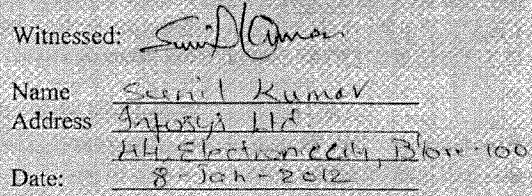 Witnessed: Sunil Kumar
Name Sunil Kumar
Address Infosys Ltd
44, Electronic City, B'lore-100
Date: 8-Jan-2012